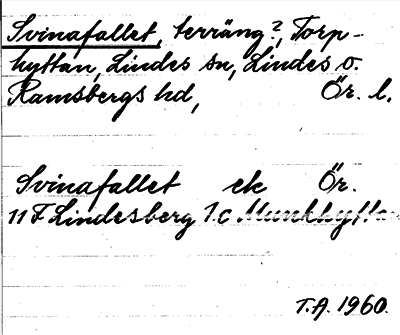 Svinafallet, terräng?, Torp-
hyttan, Lindes sn, Lindes o.
Ramsbergs hd, Ör. l.
Svinafallet ek Ör.
11 F Lindesberg 1.c Munkhytta
T.A. 1960.